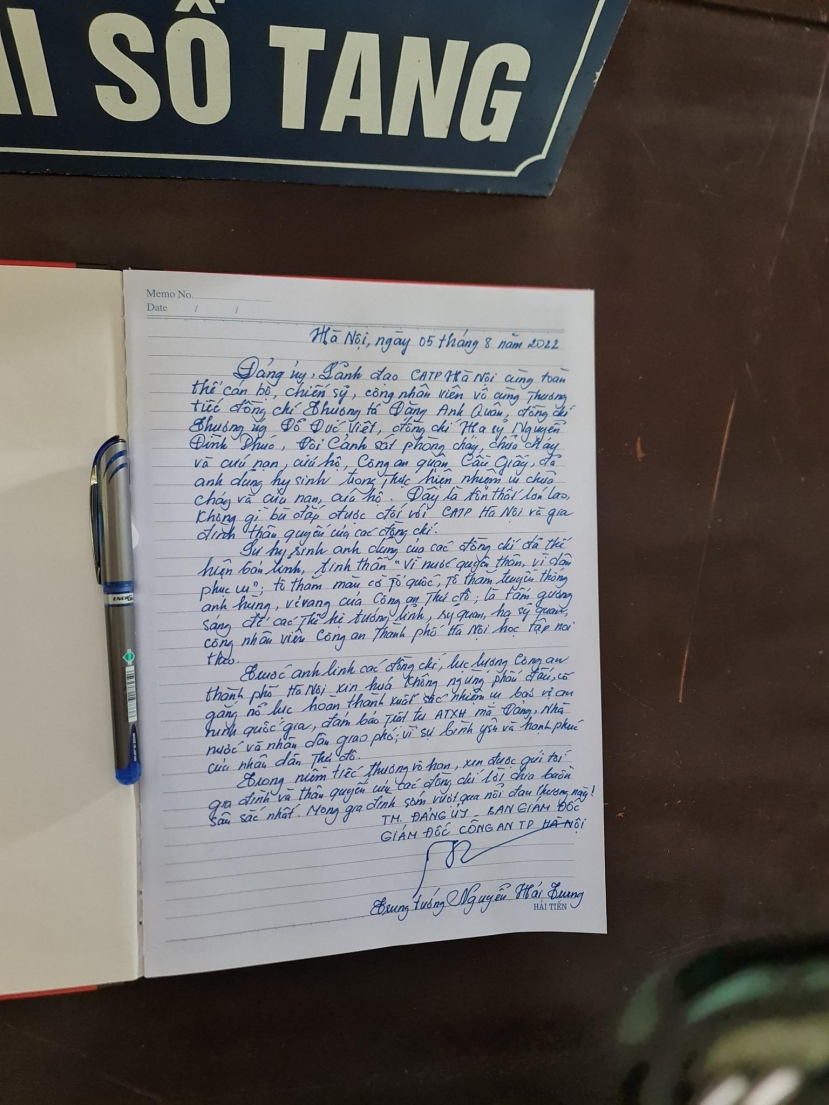 I SỔ TANG
Memo No.
Date / /
Hà Nội, ngày 05 tháng 8 năm 2022
Đảng ủy, Lãnh đạo CATP Hà Nội cùng toàn
thể cán bộ, chiến sỹ, công nhân viên vô cùng thương
tiếc đồng chí Thượng tá Đặng Anh Quân, đồng chí
Thượng úy Đỗ Đức Việt, đồng chí Hạ sỹ Nguyễn
Đình Phúc, Đội Cảnh sát phòng cháy, chữa cháy
và cứu nạn, cứu hộ, Công an quận Cầu Giấy, đã
anh dũng hy sinh trong thực hiện nhiệm vụ chữa
cháy và cứu nạn, cứu hộ. Đây là tổn thất lớn lao,
không gì bù đắp được đối với CATP Hà Nội và gia
đình thân quyến của các đồng chí.
Sự hy sinh anh dũng của các đồng chí đã thể
hiện bản lĩnh, tinh thần "Vì nước quên thân, vì dân
phục vụ"; tô thắm màu cờ Tổ quốc, tô thắm truyền thống
anh hùng, vẻ vang của Công an Thủ đô; là tấm gương
sáng để các thế hệ tướng lĩnh, sỹ quan, hạ sỹ quan,
công nhân viên Công an Thành phố Hà Nội học tập noi
theo.
Trước anh linh các đồng chí, lực lượng Công an
thành phố Hà Nội xin hứa không ngừng phấn đấu, cố
gắng nỗ lực hoàn thành xuất sắc nhiệm vụ bảo vệ an
ninh quốc gia, đảm bảo trật tự ATXH mà Đảng, Nhà
nước và nhân dân giao phó; vì sự bình yên và hạnh phúc
của nhân dân Thủ đô.
Trong niềm tiếc thương vô hạn, xin được gửi tới
gia đình và thân quyến của các đồng chí lời chia buồn
sâu sắc nhất. Mong gia đình sớm vượt qua nỗi đau thương này!
TM. ĐẢNG ỦY - BAN GIÁM ĐỐC
GIÁM ĐỐC CÔNG AN TP HÀ NỘI
Trung tướng Nguyễn Hải Trung
HẢI TIẾN